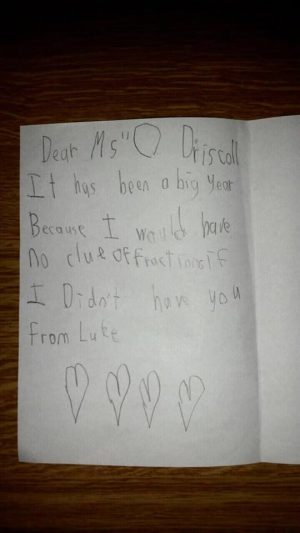 Dear Ms" O Driscoll
It has been a big year
Because I would have
no clue of fractions if
I Didn't have you
from Luke